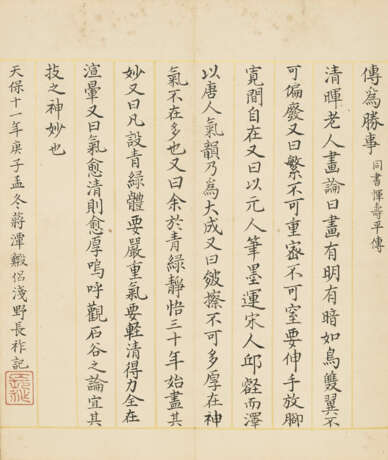 傳為勝事 同書惲壽平傳
清暉老人畫論曰畫有明有暗如鳥雙翼不
可偏廢又曰繁不可重密不可窒要伸手放脚
寬間自在又曰以元人筆墨運宋人邱壑而澤
以唐人氣韻乃為大成又曰皴擦不可多厚在神
氣不在多也又曰余於青綠靜悟三十年始盡其
妙又曰凡設青綠體要嚴重氣要輕清得力全在
渲暈又曰氣愈清則愈厚嗚呼觀石谷之論宜其
技之神妙也
天保十一年庚子孟冬蔣潭 侶淺野長祚記